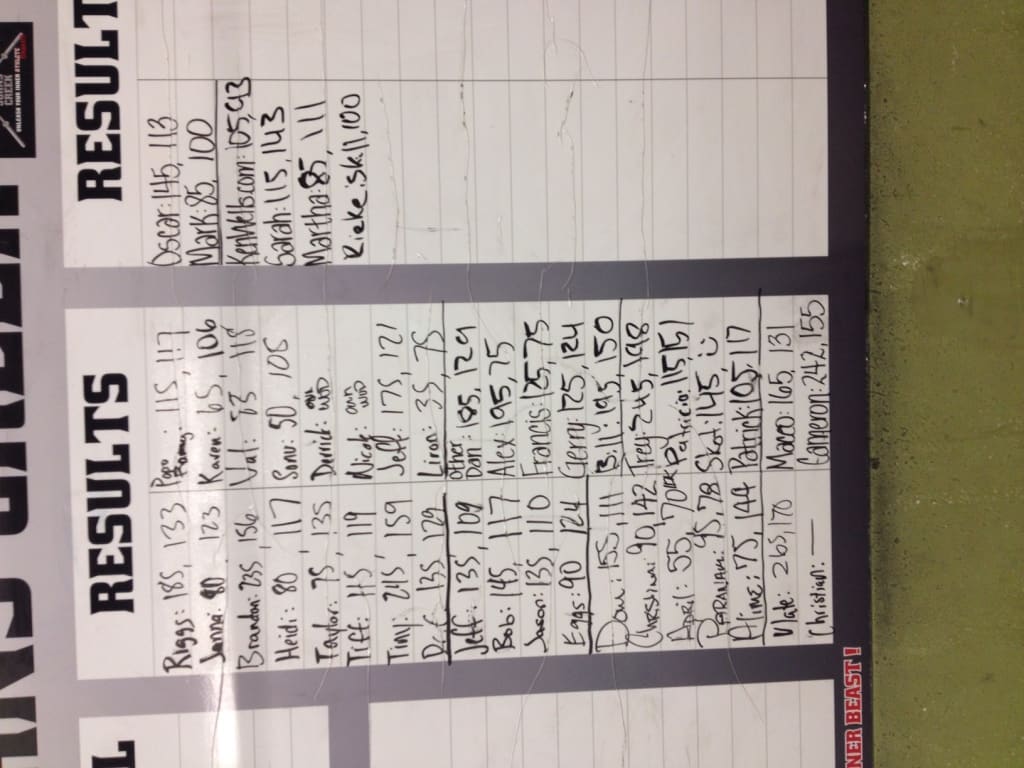 RESULTS
Riggs: 185, 133
Janna: 80 123
Brandon: 235, 156
Heidi: 80, 117
Taylor: 75, 135
Tiff: 115, 119
Timy: 215, 159
135, 129
Jeff: 135, 109
Bob: 145, 117
Jason: 135, 110
Eggs: 90, 124
Dow: 155, 111
Christina: 90, 142
April: 55, 70
95, 78
Aline: 75, 144
Vlate: 265, 170
Christian: —
115, 117
Karen: 65, 106
Val: 83, 118
Sonu: 50, 105
Derrick: own WOD
Nick: own WOD
Jeff: 175, 121
Liron: 35, 75
Other
Dan: 185, 129
Alex 195, 75
Francis: 125, 75
Gerry: 125, 124
Bill: 195, 150
Trey: 245, 198
Patricio: 115, 151
Skot: 145, :)
Patrick: 105, 117
Marco: 165, 131
Cameron: 242, 155
RESULT
Oscar: 145, 113
Mark: 85, 100
KenWells.com: 105, 93
Sarah: 115, 143
Martha: 85, 111
Rieke: Skill, 100
CREEK
UNLEASH YOUR INNER ATHLETE
NER BEAST!